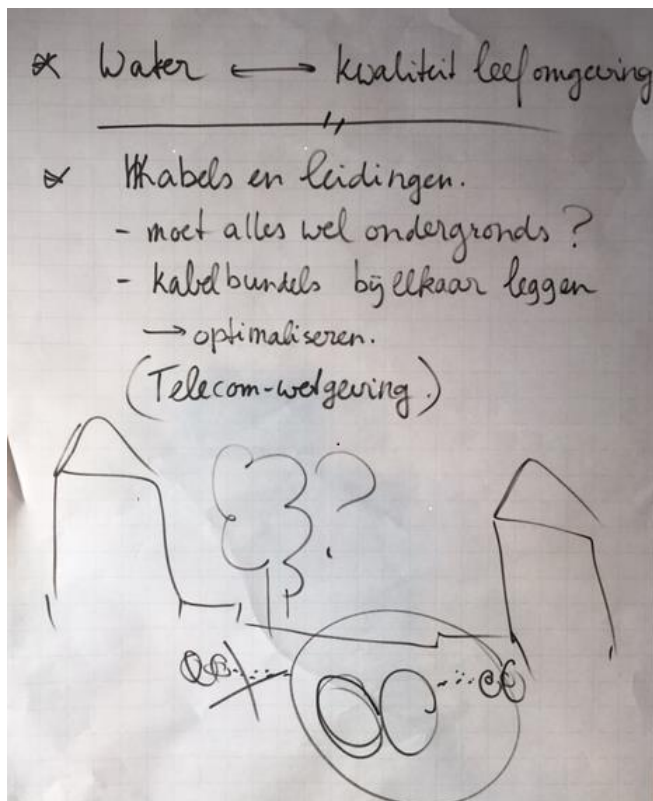 * Water ⟷ kwaliteit leefomgeving
* Kabels en leidingen.
- moet alles wel ondergronds ?
- kabelbundels bij elkaar leggen
→ optimaliseren.
(Telecom-wetgeving.)
?